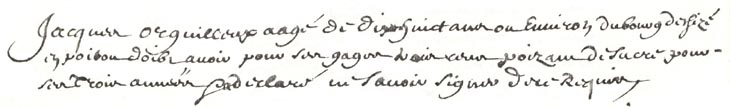 Jacques orguilleux aagé de dix huict ans ou Environ du bourg de sizé
en poitou doibt avoir pour ses gages trois cens poizant de sucre pour
ses trois années Et a declaré ne savoir signer de ce Requis